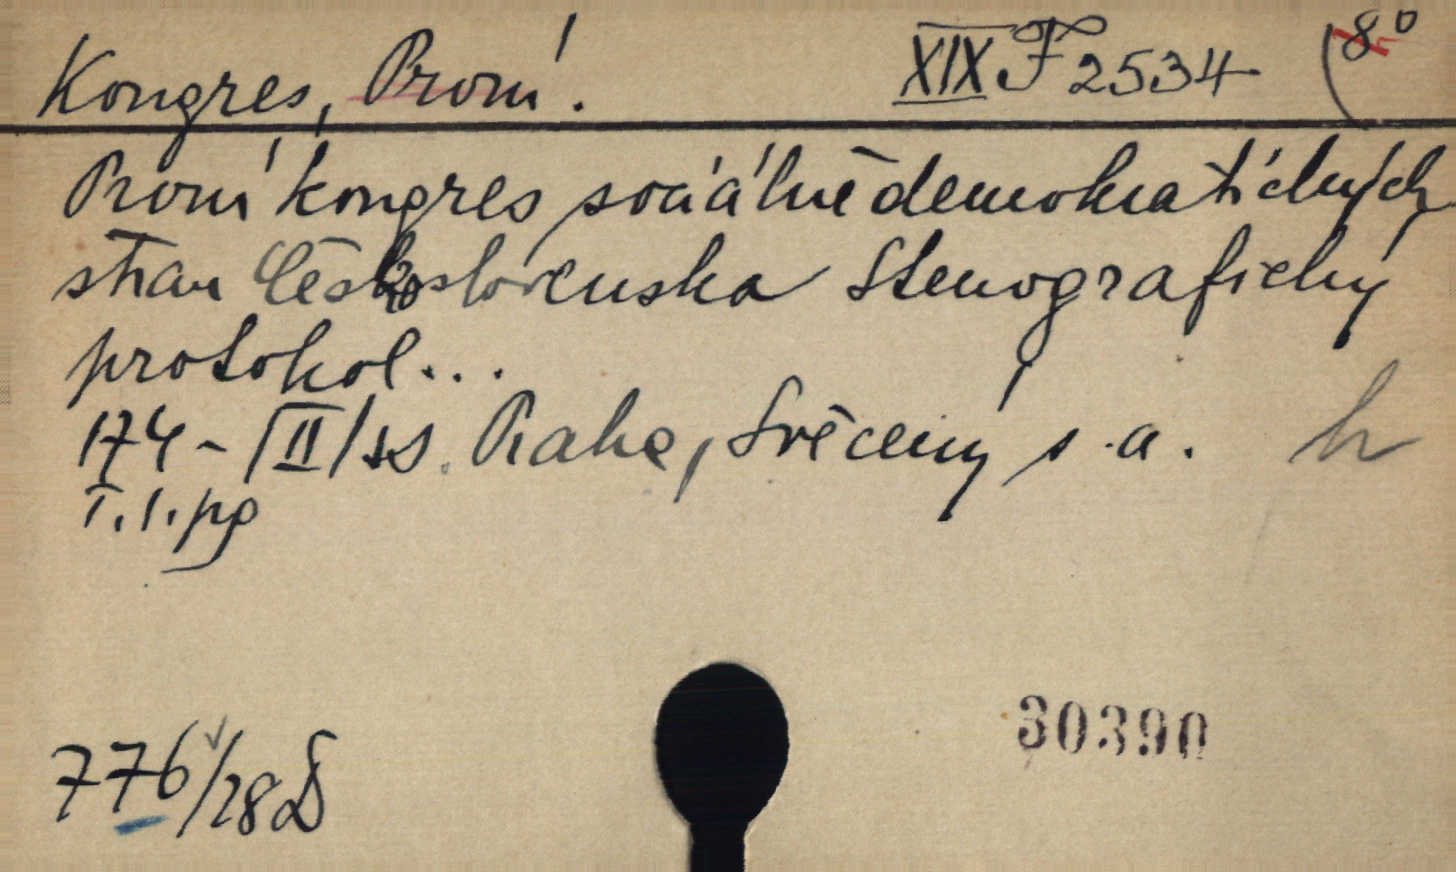 Kongres, První. XIX F 2534 (8°
První kongres sociálně demokratických
stran Československa Stenografický
protokol...
174 - /II/ ss. Praha, Svěcený s. a. h
T. 1. pg
776/28 D
30390